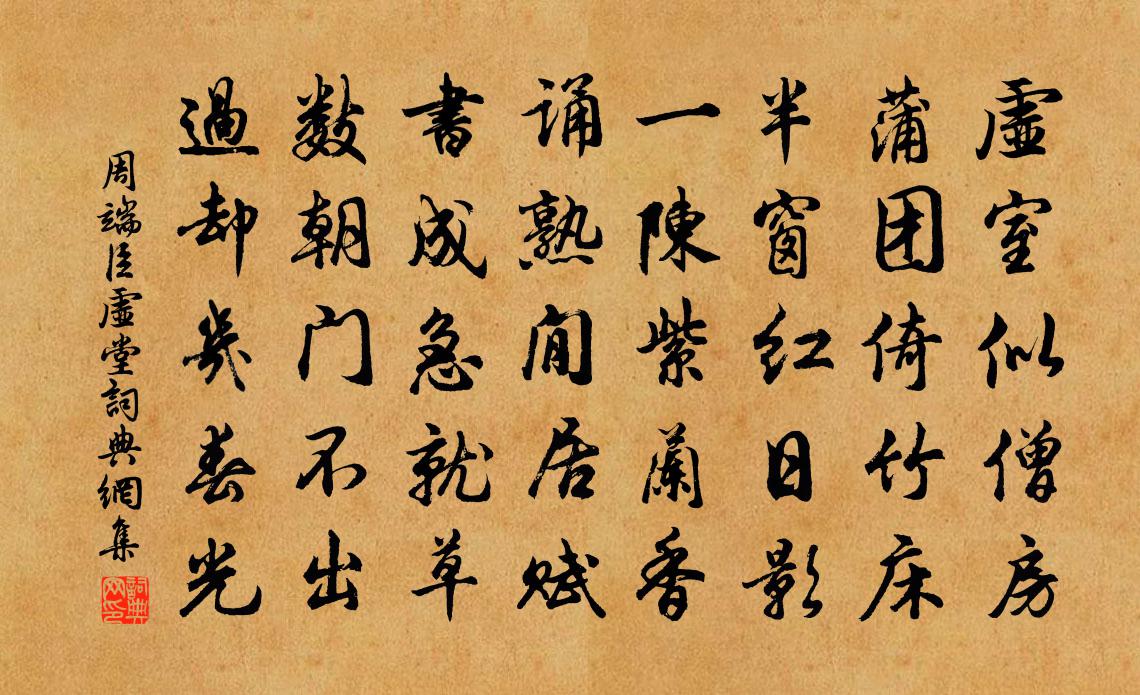 虛室似僧房
蒲团倚竹床
半窗红日影
一陳紫蘭香
诵熟閒居赋
書成急就草
数朝门不出
過却幾春光
周端臣虛堂詞典網集
詞典网印